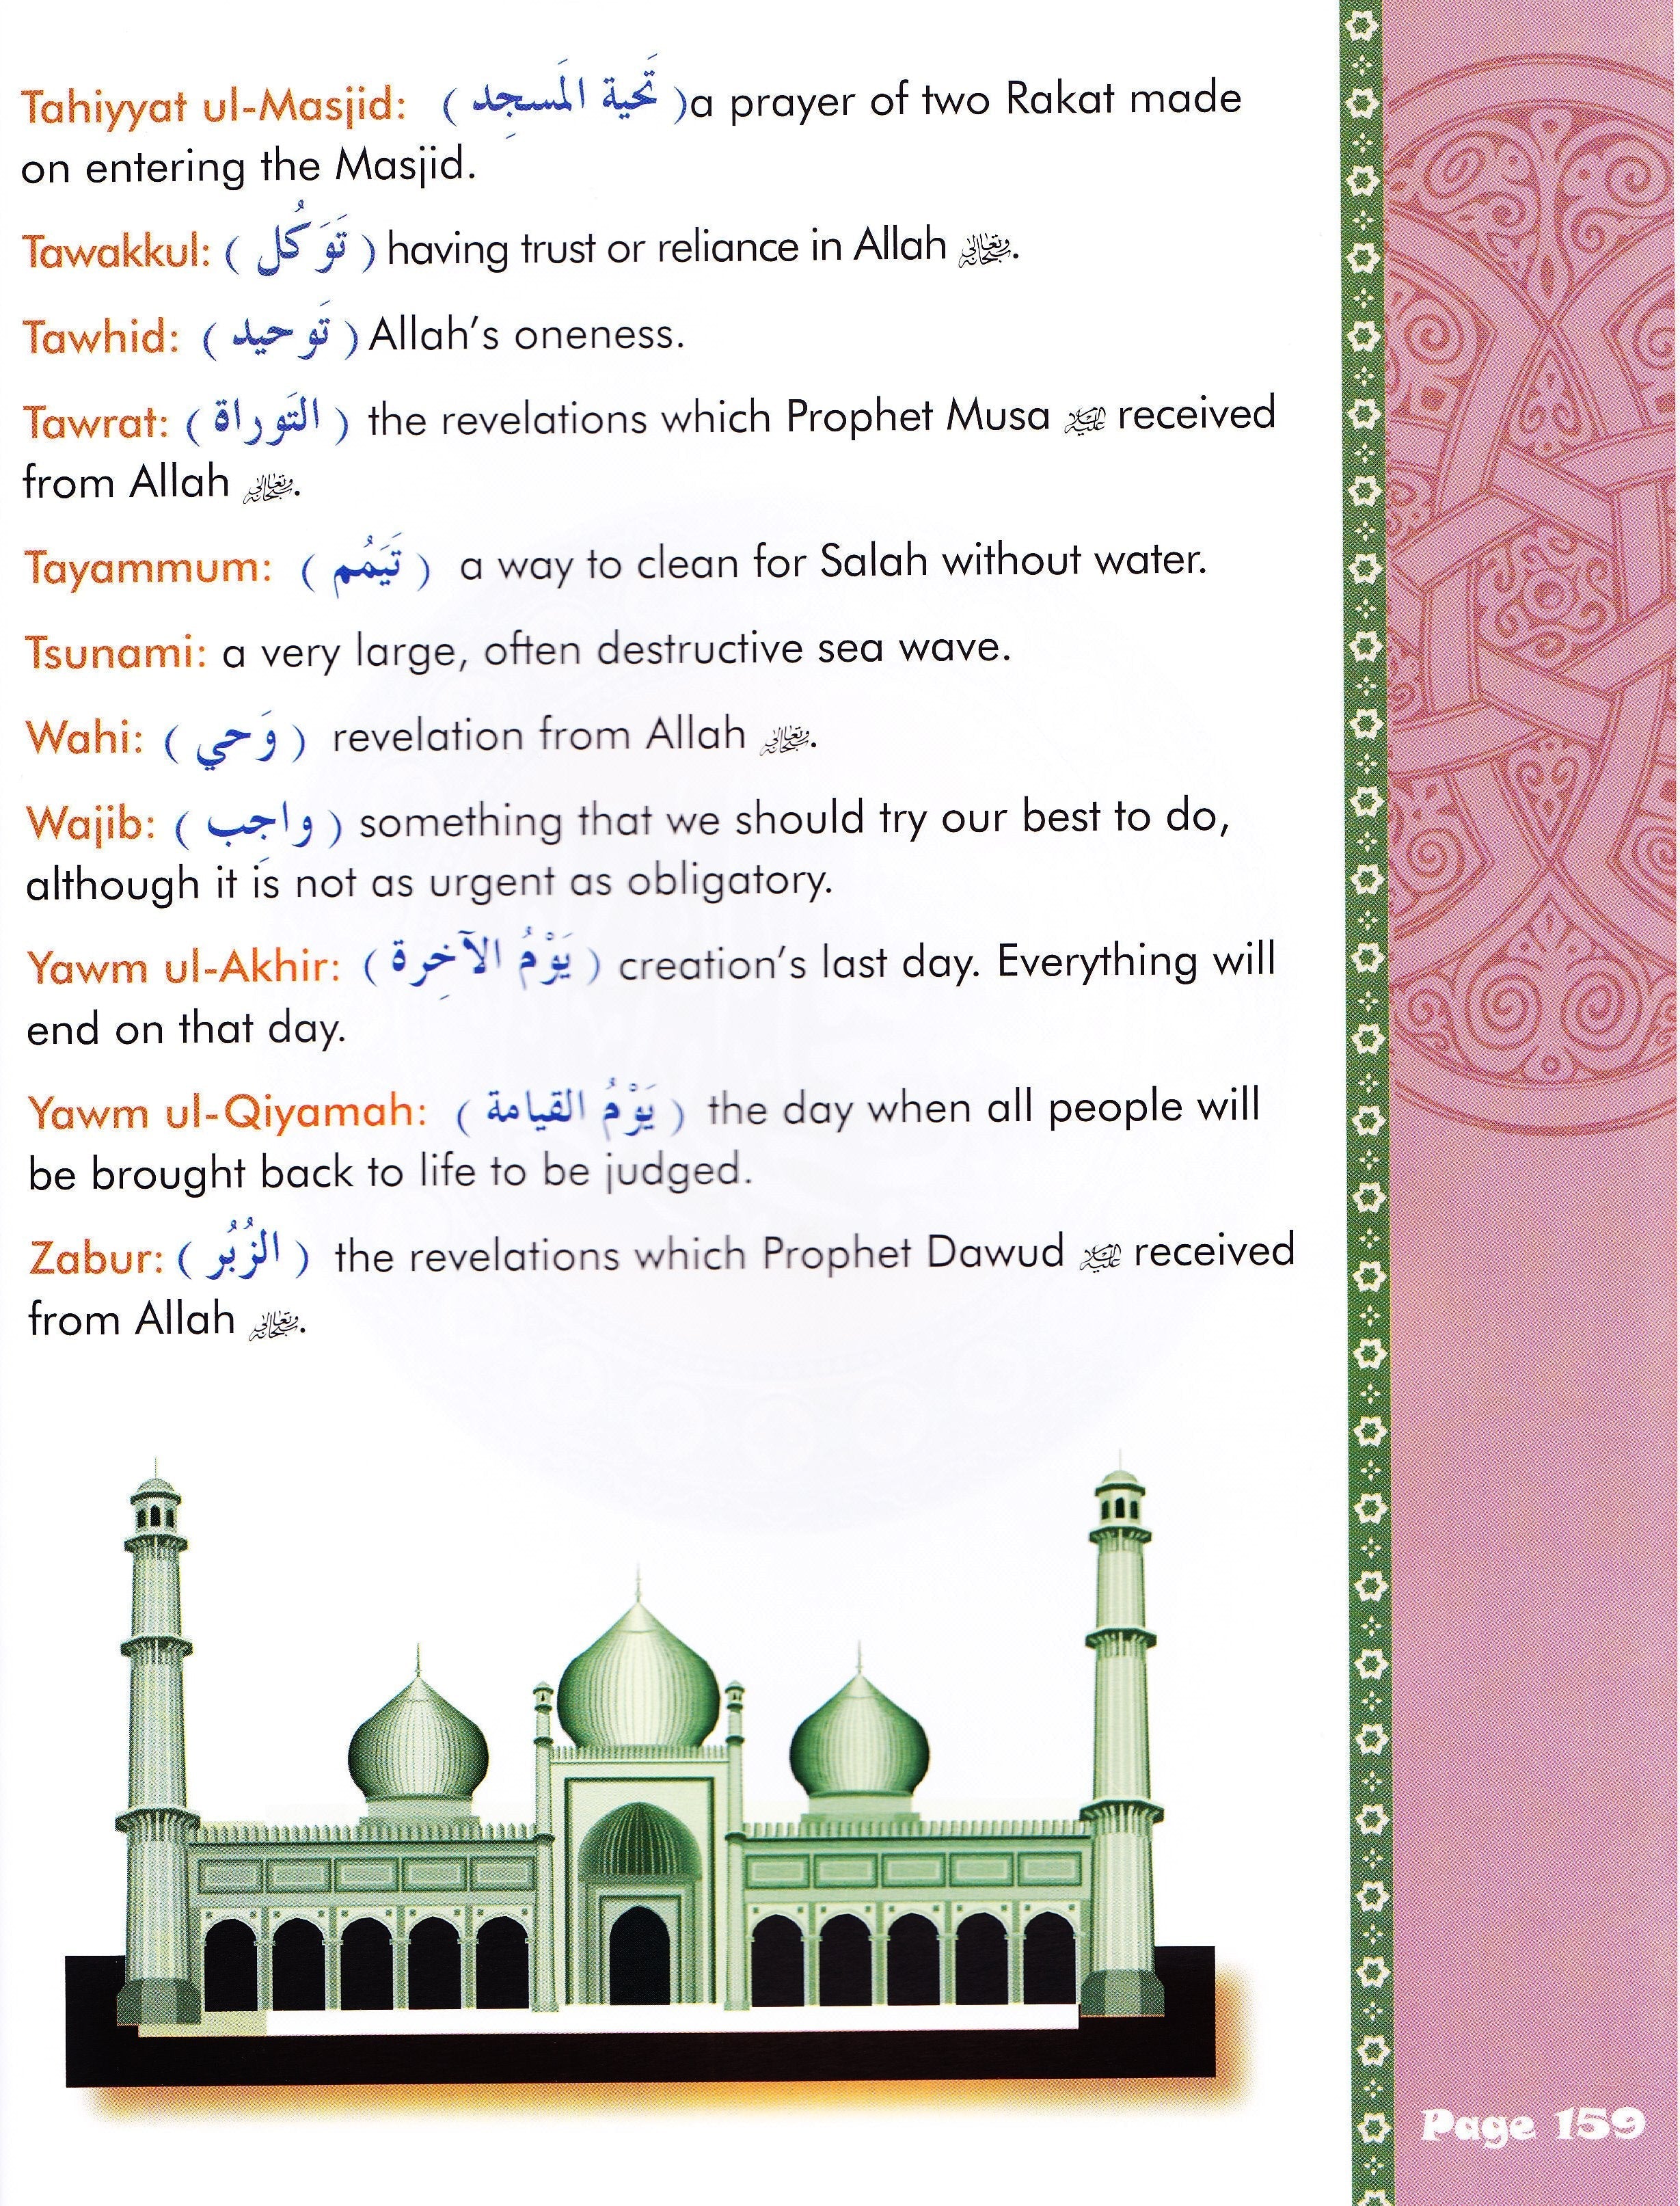 Tahiyyat ul-Masjid: ( تَحية المَسجِد )a prayer of two Rakat made
on entering the Masjid.
Tawakkul: ( تَوَكُل ) having trust or reliance in Allah سبحانه وتعالى.
Tawhid: ( تَوحيد ) Allah's oneness.
Tawrat: ( التَوراة ) the revelations which Prophet Musa عليه السلام received
from Allah سبحانه وتعالى.
Tayammum: ( تَيَمُم ) a way to clean for Salah without water.
Tsunami: a very large, often destructive sea wave.
Wahi: ( وَحي ) revelation from Allah سبحانه وتعالى.
Wajib: ( واجِب ) something that we should try our best to do,
although it is not as urgent as obligatory.
Yawm ul-Akhir: ( يَوْمُ الآخِرة ) creation's last day. Everything will
end on that day.
Yawm ul-Qiyamah: ( يَوْمُ القيامة ) the day when all people will
be brought back to life to be judged.
Zabur: ( الزُبُر ) the revelations which Prophet Dawud عليه السلام received
from Allah سبحانه وتعالى.
Page 159